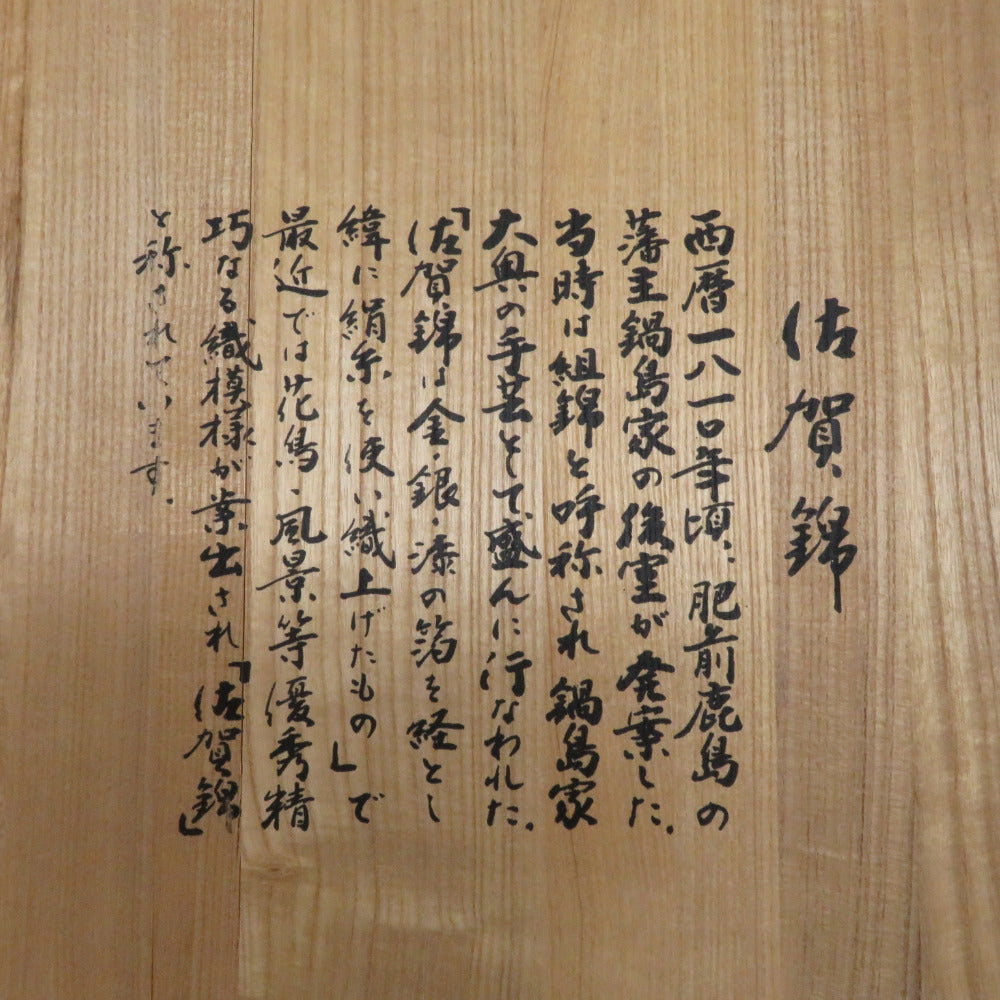 佐賀錦
西暦一八一〇年頃、肥前鹿島の
藩主鍋島家の後室が発案した。
当時は組錦と呼称され鍋島家
大奥の手芸として盛んに行なわれた。
「佐賀錦は金・銀・漆の箔を経とし
緯に絹糸を使い織上げたもの」で
最近では花鳥・風景等優秀精
巧なる織模様が案出され「佐賀錦」
と称されています。